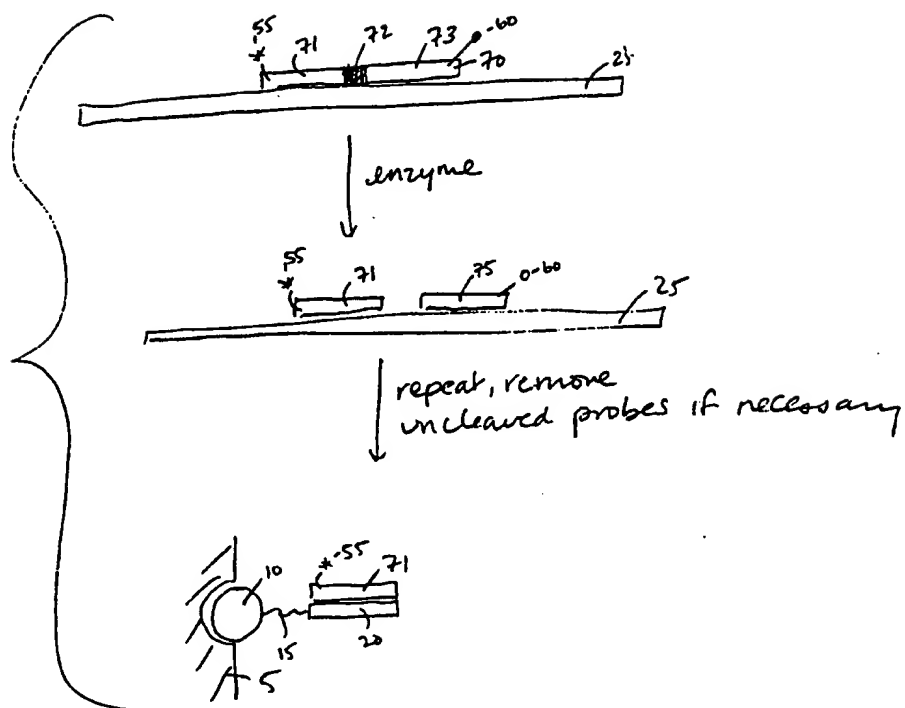 *55 71 72 73 -60 70 25
enzyme
*55 71 75 0-60 25
repeat, remove
uncleaved probes if necessary
10 *-55 71
15 20
5